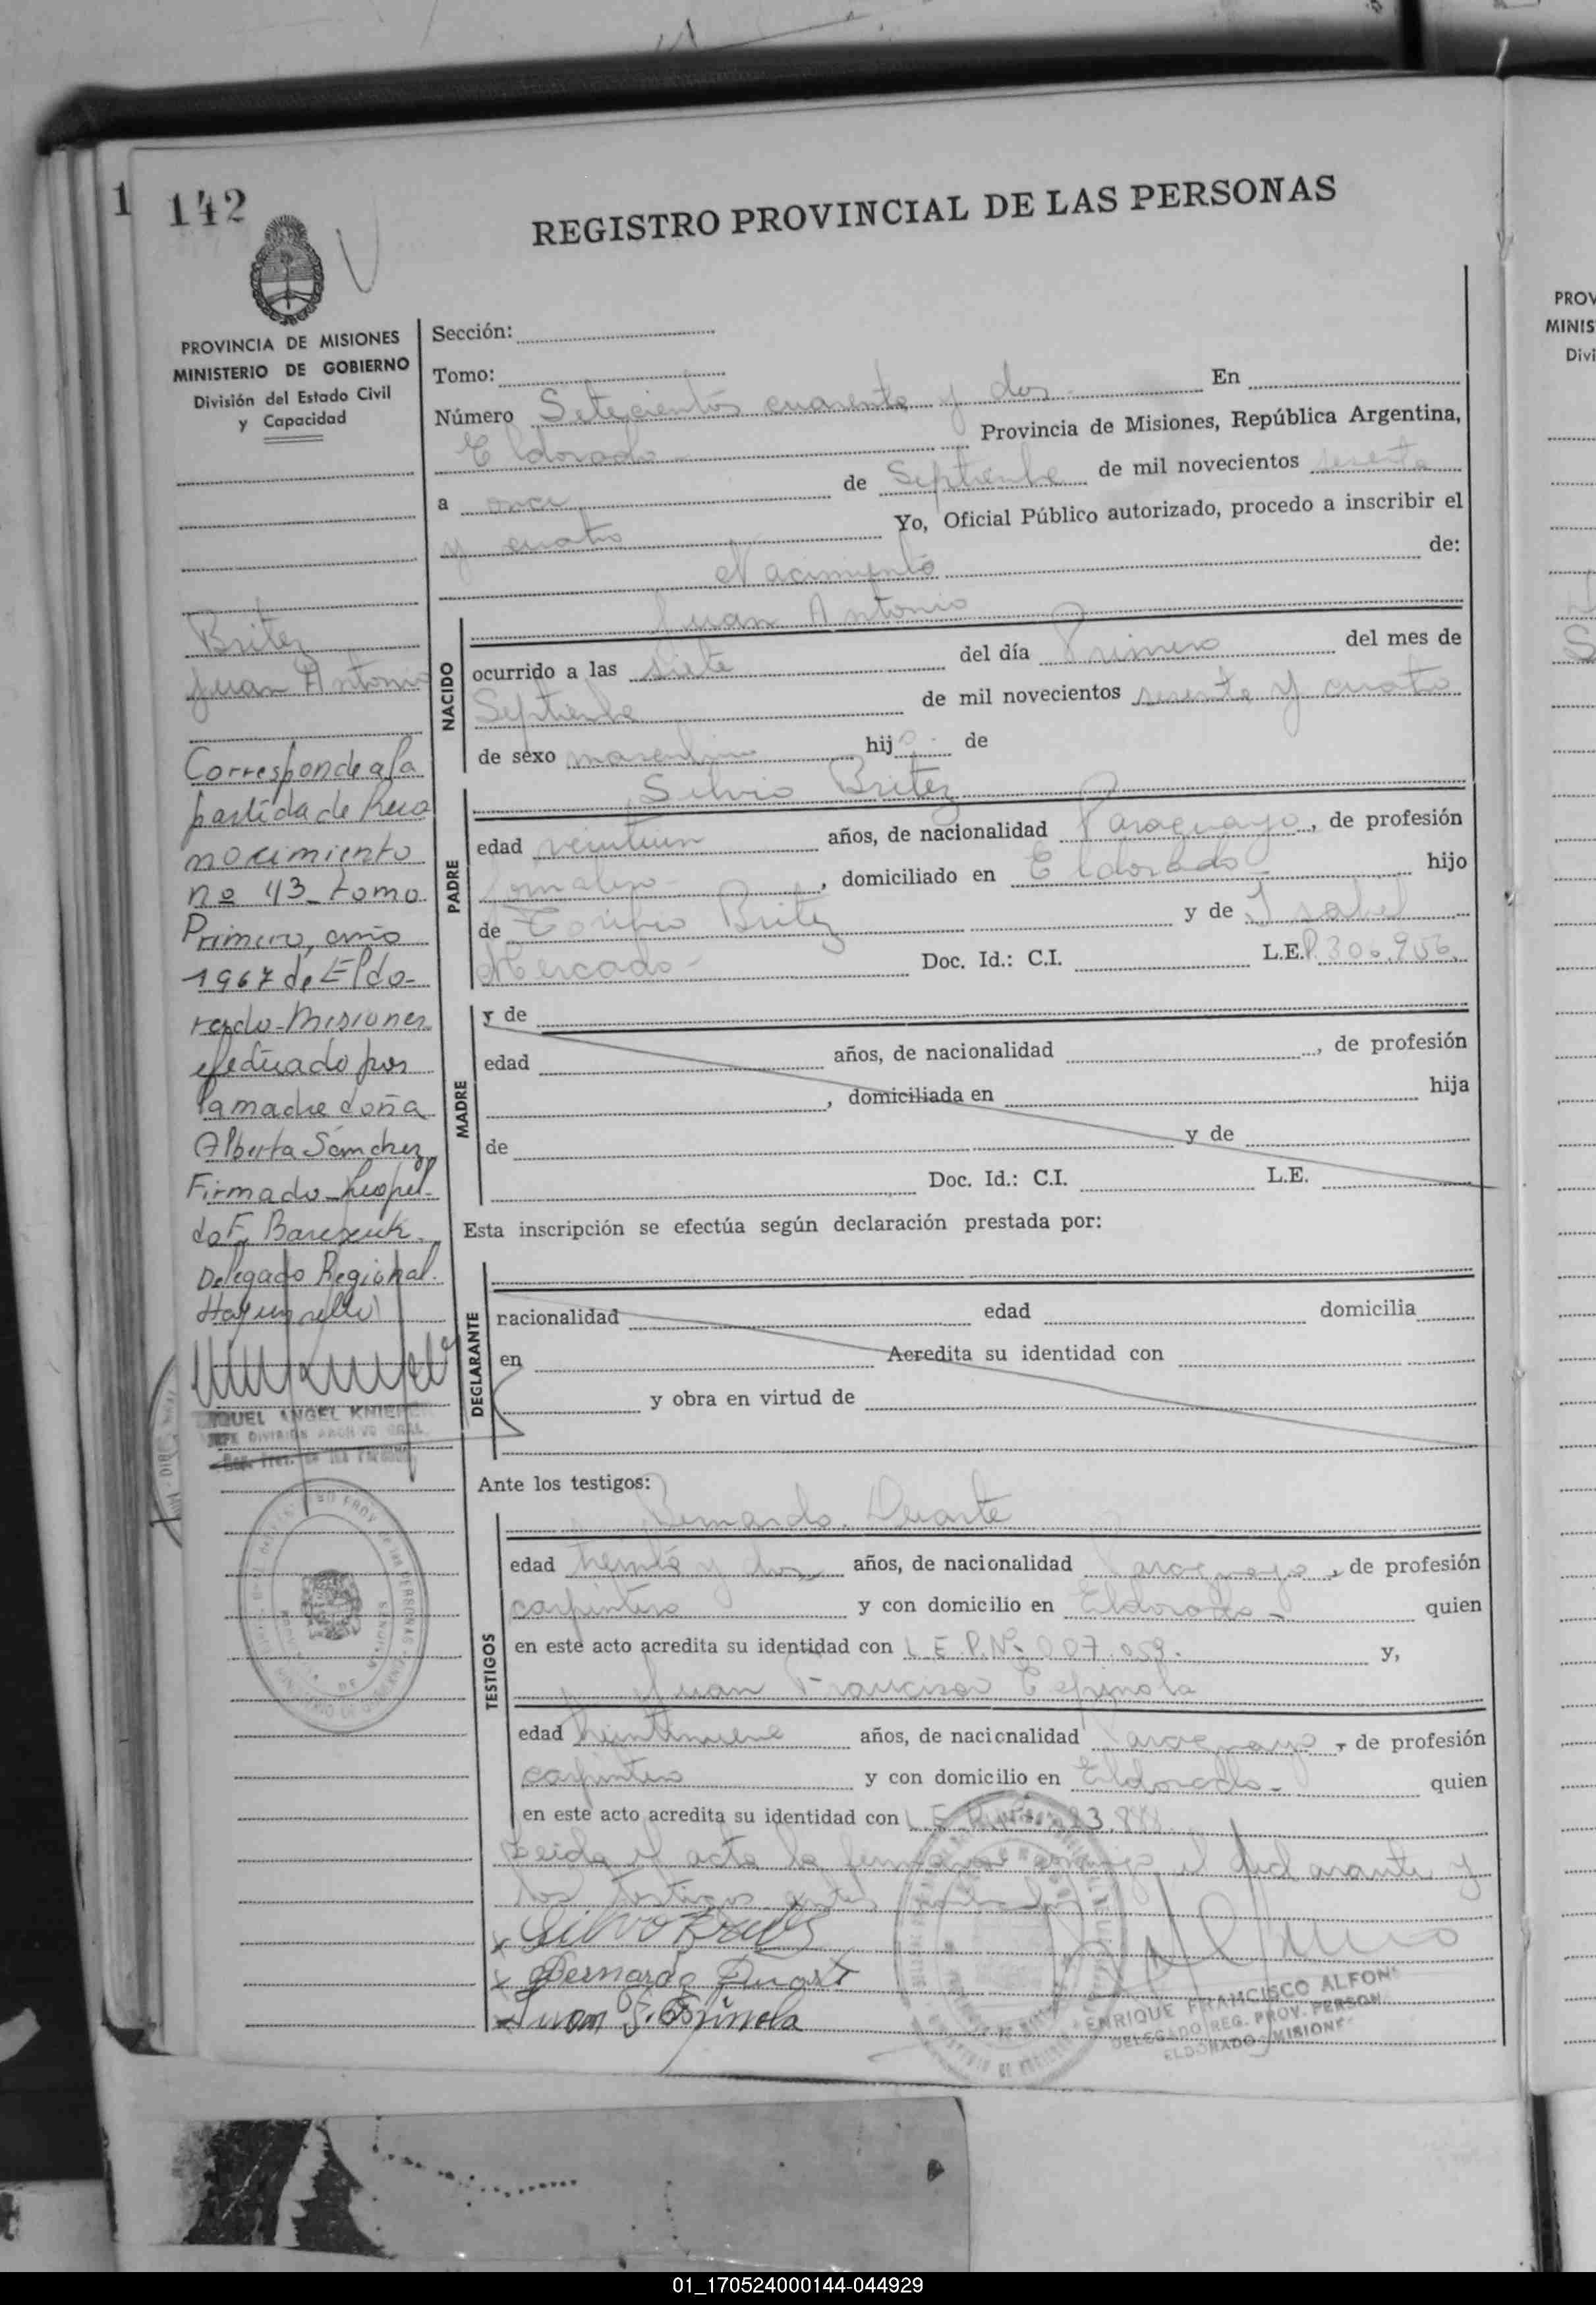 1
142
REGISTRO PROVINCIAL DE LAS PERSONAS
PROVINCIA DE MISIONES
MINISTERIO DE GOBIERNO
División del Estado Civil
y Capacidad
Britez
Juan Antonio
Corresponde a la
partida de Reco
nocimiento
nº 43 tomo
Primero, año
1967 de Eldo-
rado-Misiones
efectuado por
la madre doña
Alberta Sánchez
Firmado Leopol-
do F.
Delegado Regional.
Hay un sello
MIGUEL ANGEL
JEFE DIVISION ARCHIVO GRAL.
Sección:
Tomo:
Número Setecientos cuarenta y dos - En
Eldorado - Provincia de Misiones, República Argentina,
a once de Septiembre de mil novecientos sesenta
y cuatro Yo, Oficial Público autorizado, procedo a inscribir el
Nacimiento de:
Juan Antonio
NACIDO
ocurrido a las siete del día Primero del mes de
Septiembre de mil novecientos sesenta y cuatro
de sexo masculino hijo de
Silvio Britez
PADRE
edad veintiun años, de nacionalidad Paraguayo, de profesión
, domiciliado en Eldorado - hijo
de Toribio Britez y de Isabel
Mercado - Doc. Id.: C.I. L.E. P. 306.956.
MADRE
y de
edad años, de nacionalidad , de profesión
, domiciliada en hija
de y de
Doc. Id.: C.I. L.E.
Esta inscripción se efectúa según declaración prestada por:
DECLARANTE
nacionalidad edad domicilia
en Acredita su identidad con
y obra en virtud de
Ante los testigos:
Bernardo Duarte
TESTIGOS
edad treinta y dos años, de nacionalidad Paraguayo, de profesión
carpintero y con domicilio en Eldorado - quien
en este acto acredita su identidad con L.E.P.Nº 007.059. y,
Juan Francisco Espinola
edad treintinueve años, de nacionalidad Paraguayo, de profesión
carpintero y con domicilio en Eldorado - quien
en este acto acredita su identidad con L.E.
Leida el acta la firman conmigo el declarante y
los testigos
Silvio Britez
Bernardo Duarte
Juan F. Espinola
ENRIQUE FRANCISCO ALFON
DELEGADO REG. PROV. PERSON
ELDORADO - MISIONES
PROV
MINIS
Divi
01_170524000144-044929